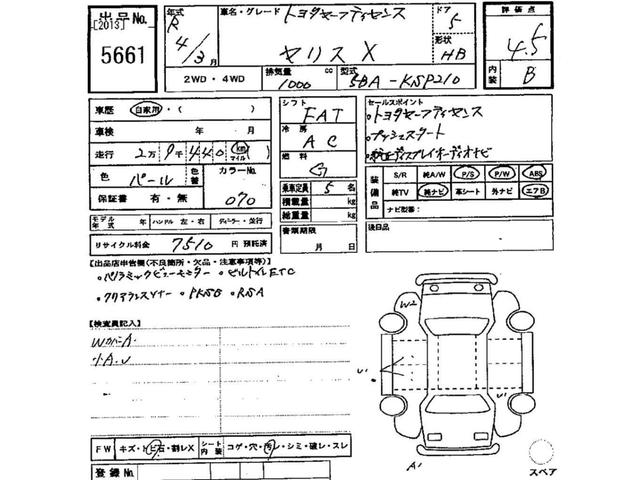 出品No.
[2013]
5661
年式
R
4/3月
車名・グレード トヨタセーフティセンス
ヤリス X
ドア
5
形状
HB
評価点
4.5
内装 B
2WD・4WD
排気量 1000 cc
型式 5BA-KSP210
車歴 自家用・( )
車検 年 月
走行 2万9千440 (km マイル)
色 パール
色番
カラーNo. 070
保証書 有・無
モデル年式 年 ハンドル 左・右 ディーラー・並行
リサイクル料金 7510 円預託済
シフト FAT
冷房 AC
燃料 G
乗車定員 5 名
積載量 kg
総重量 kg
書類期限
月 日
セールスポイント
・トヨタセーフティセンス
・プッシュスタート
・純正ディスプレイオーディオナビ
装備品
S/R A/W P/S P/W ABS
純TV 純ナビ 革シート 外ナビ エアB
ナビ型番:
後日品
【出品店申告欄(不良箇所・欠品・注意事項等)】
・パノラミックビューモニター ・ビルトインETC
・クリアランスソナー ・PKSB ・RSA
【検査員記入】
WカバーA.
小A.U
W2
U1
U1
A1
FW キズ・トビ石・割レX シート内装 コゲ・穴・汚レ・シミ・破レ・スレ
登録No.
スペア